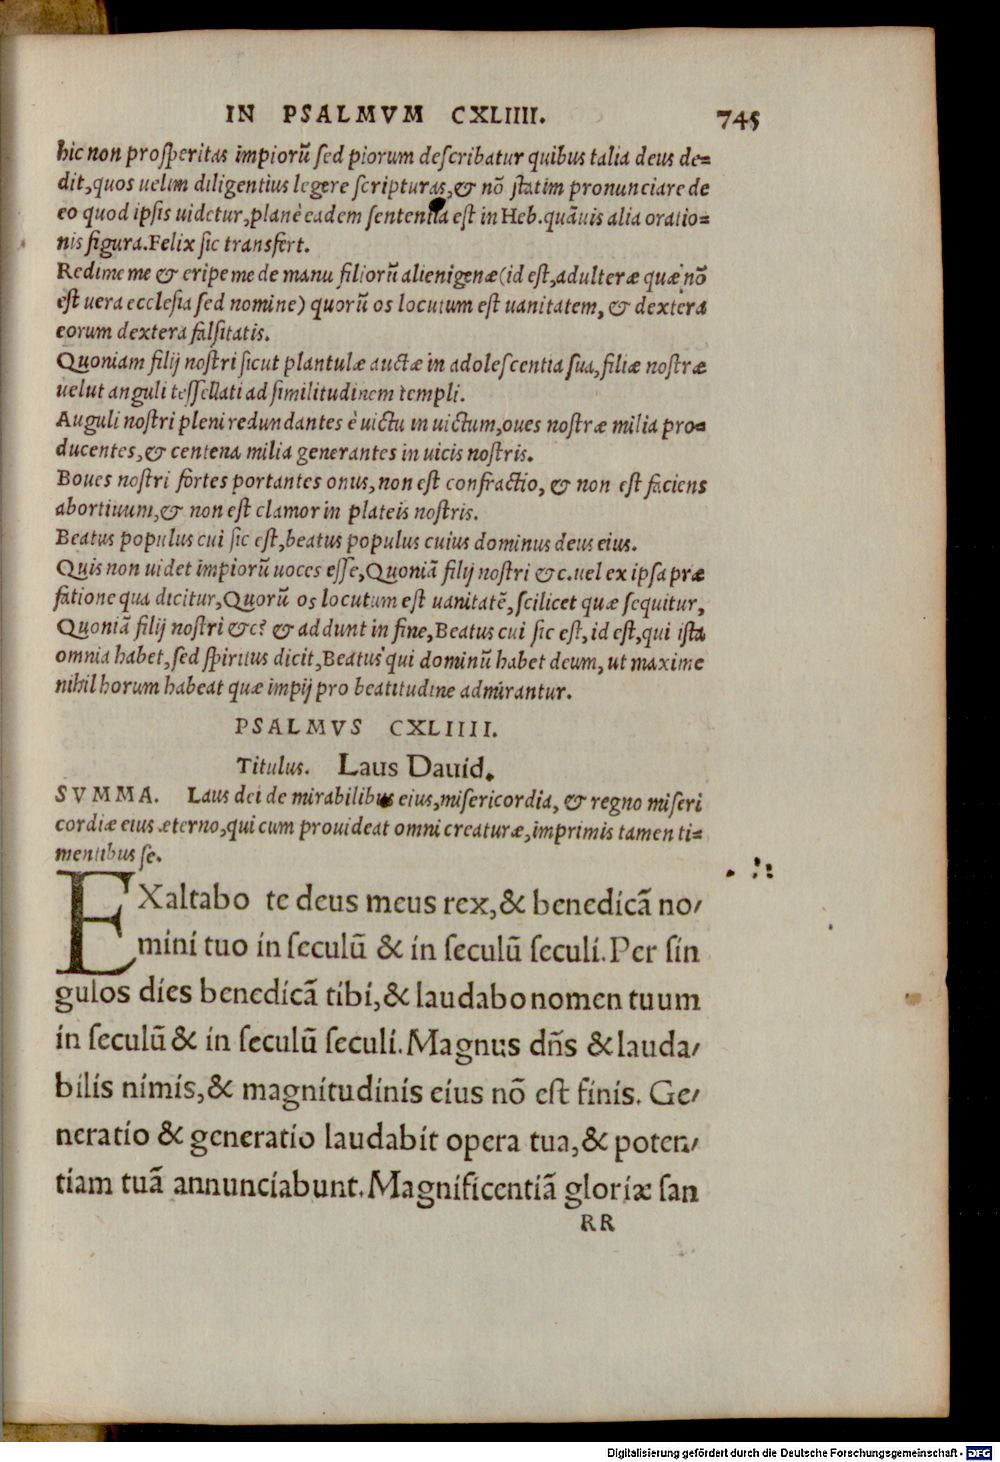 IN PSALMVM CXLIIII. 745
hic non prosperitas impiorũ sed piorum describatur quibus talia deus de=
dit, quos uelim diligentius legere scripturas, & nõ statim pronunciare de
eo quod ipsis uidetur, planè eadem sententia est in Heb. quãuis alia oratio=
nis figura. Felix sic transfert.
Redime me & eripe me de manu filiorũ alienigenæ (id est, adulteræ quæ nõ
est uera ecclesia sed nomine) quorũ os locutum est uanitatem, & dextera
eorum dextera falsitatis.
Quoniam filij nostri sicut plantulæ auctæ in adolescentia sua, filiæ nostræ
uelut anguli tessellati ad similitudinem templi.
Auguli nostri pleni redundantes è uictu in uictum, oues nostræ milia pro=
ducentes, & centena milia generantes in uicis nostris.
Boues nostri fortes portantes onus, non est confractio, & non est faciens
abortiuum, & non est clamor in plateis nostris.
Beatus populus cui sic est, beatus populus cuius dominus deus eius.
Quis non uidet impiorũ uoces esse, Quoniã filij nostri &c. uel ex ipsa præ
fatione qua dicitur, Quorũ os locutum est uanitatẽ, scilicet quæ sequitur,
Quoniã filij nostri &c? & addunt in fine, Beatus cui sic est, id est, qui ista
omnia habet, sed spiritus dicit, Beatus qui dominũ habet deum, ut maxime
nihil horum habeat quæ impij pro beatitudine admirantur.
PSALMVS CXLIIII.
Titulus. Laus Dauid.
SVMMA. Laus dei de mirabilibus eius, misericordia, & regno miseri
cordiæ eius æterno, qui cum prouideat omni creaturæ, imprimis tamen ti=
mentibus se.
EXaltabo te deus meus rex, & benedicã no/
mini tuo in seculũ & in seculũ seculi. Per sin
gulos dies benedicã tibi, & laudabo nomen tuum
in seculũ & in seculũ seculi. Magnus dñs & lauda/
bilis nimis, & magnitudinis eius nõ est finis. Ge/
neratio & generatio laudabit opera tua, & poten/
tiam tuã annunciabunt. Magnificentiã gloriæ san
RR
Digitalisierung gefördert durch die Deutsche Forschungsgemeinschaft - DFG